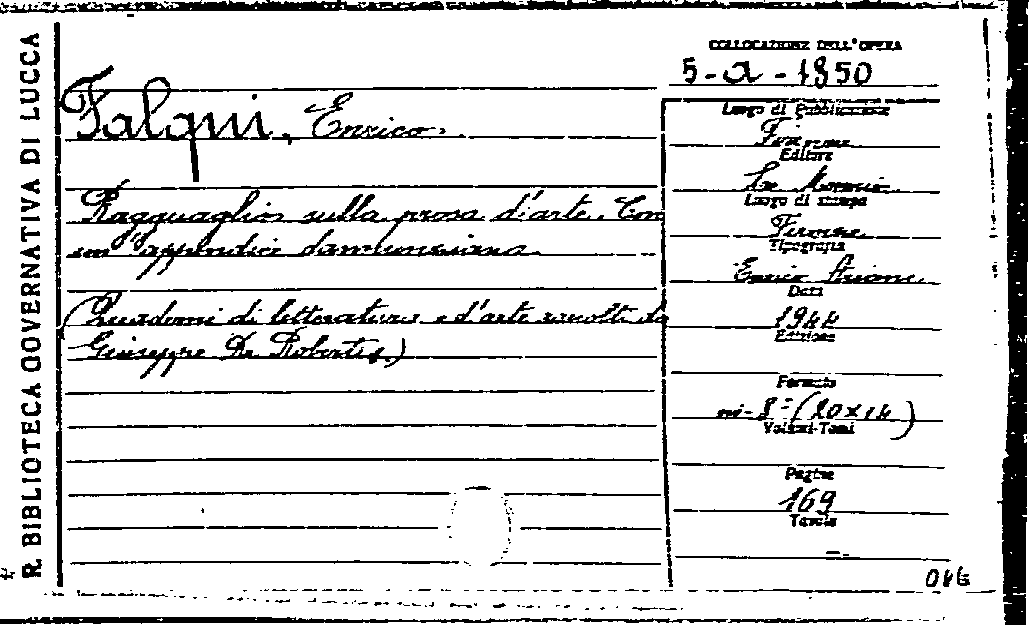 R. BIBLIOTECA GOVERNATIVA DI LUCCA
COLLOCAZIONE DELL'OPERA
5-a-1850
Falqui, Enrico.
Ragguaglio sulla prosa d'arte. Con
un'appendice dannunziana.
(Quaderni di letteratura e d'arte raccolti da
Giuseppe De Robertis.)
Luogo di Pubblicazione
Firenze
Editore
Le Monnier
Luogo di stampa
Firenze
Tipografia
Enrico Ariani
Data
1944
Edizione
Formato
in-8° (20x14)
Volumi-Tomi
Pagine
169
Tavole